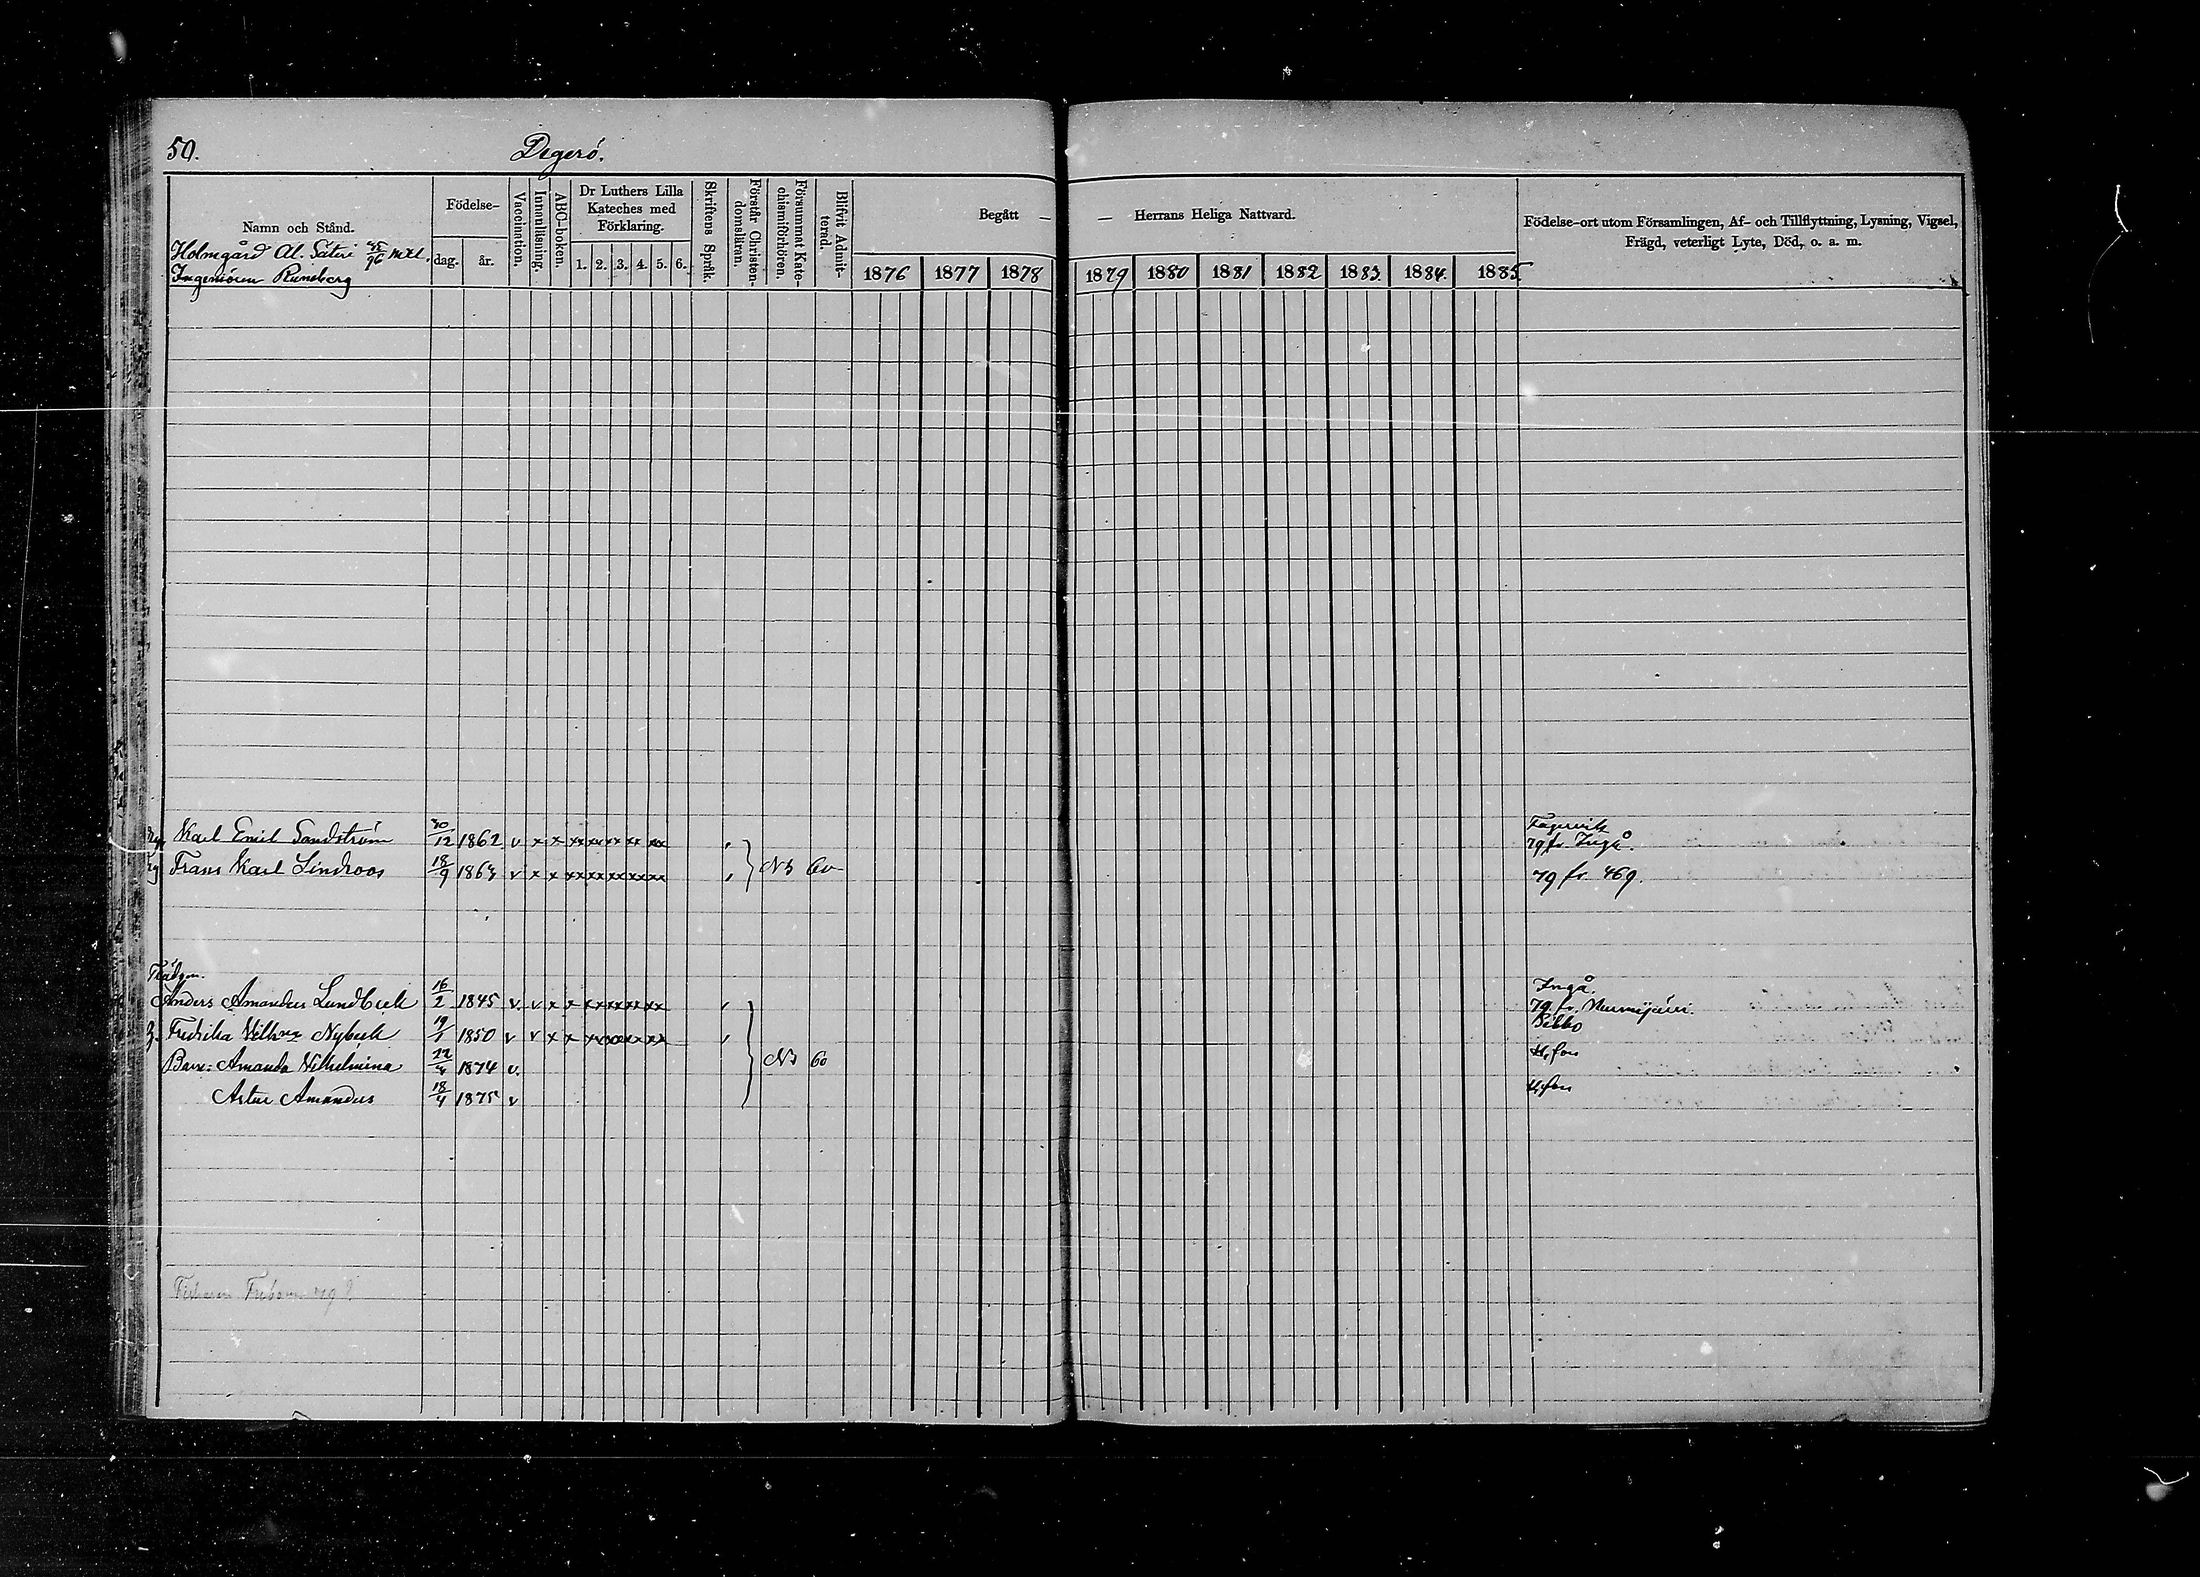 50.
Degerö.
Namn och Stånd.
Holmgård Al. Säteri 35/96 Mtl.
Ingeniören Runeberg
Födelse-
dag. år.
Vaccination.
Innanläsning.
ABC-boken.
Dr Luthers Lilla Kateches med Förklaring.
1. 2. 3. 4. 5. 6.
Skriftens Språk.
Förstår Christendomslären.
Försummat Katechismiförhören.
Blifvit Admitterad.
Begått — — Herrans Heliga Nattvard.
1876 1877 1878 1879 1880 1881 1882 1883. 1884. 1885
Födelse-ort utom Församlingen, Af- och Tillflyttning, Lysning, Vigsel,
Frägd, veterligt Lyte, Död, o. a. m.
Fagervik
Karl Emil Sandström 30/12 1862 v x x xx xx xx xx xx 79 fr. Ingå.
Frans Karl Lindroos 18/9 1863 v x x xx xx xx xx xx NB 60 79 fr. 469.
Trädgm. Ingå.
Anders Amandus Lundbeck 16/2 1845 v. v x x xx xx xx xx 79 fr. Nurmijärvi.
Sibbo
Fredrika Vilh:na Nybeck 19/1 1850 v v x x
H:fors
Barn: Amanda Vilhelmina 22/4 1874 v. NB 60
H:fors
Artur Amandus 18/4 1875 v